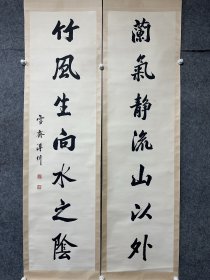 蘭氣静流山以外
竹風生向水之陰
雪齋溥伒